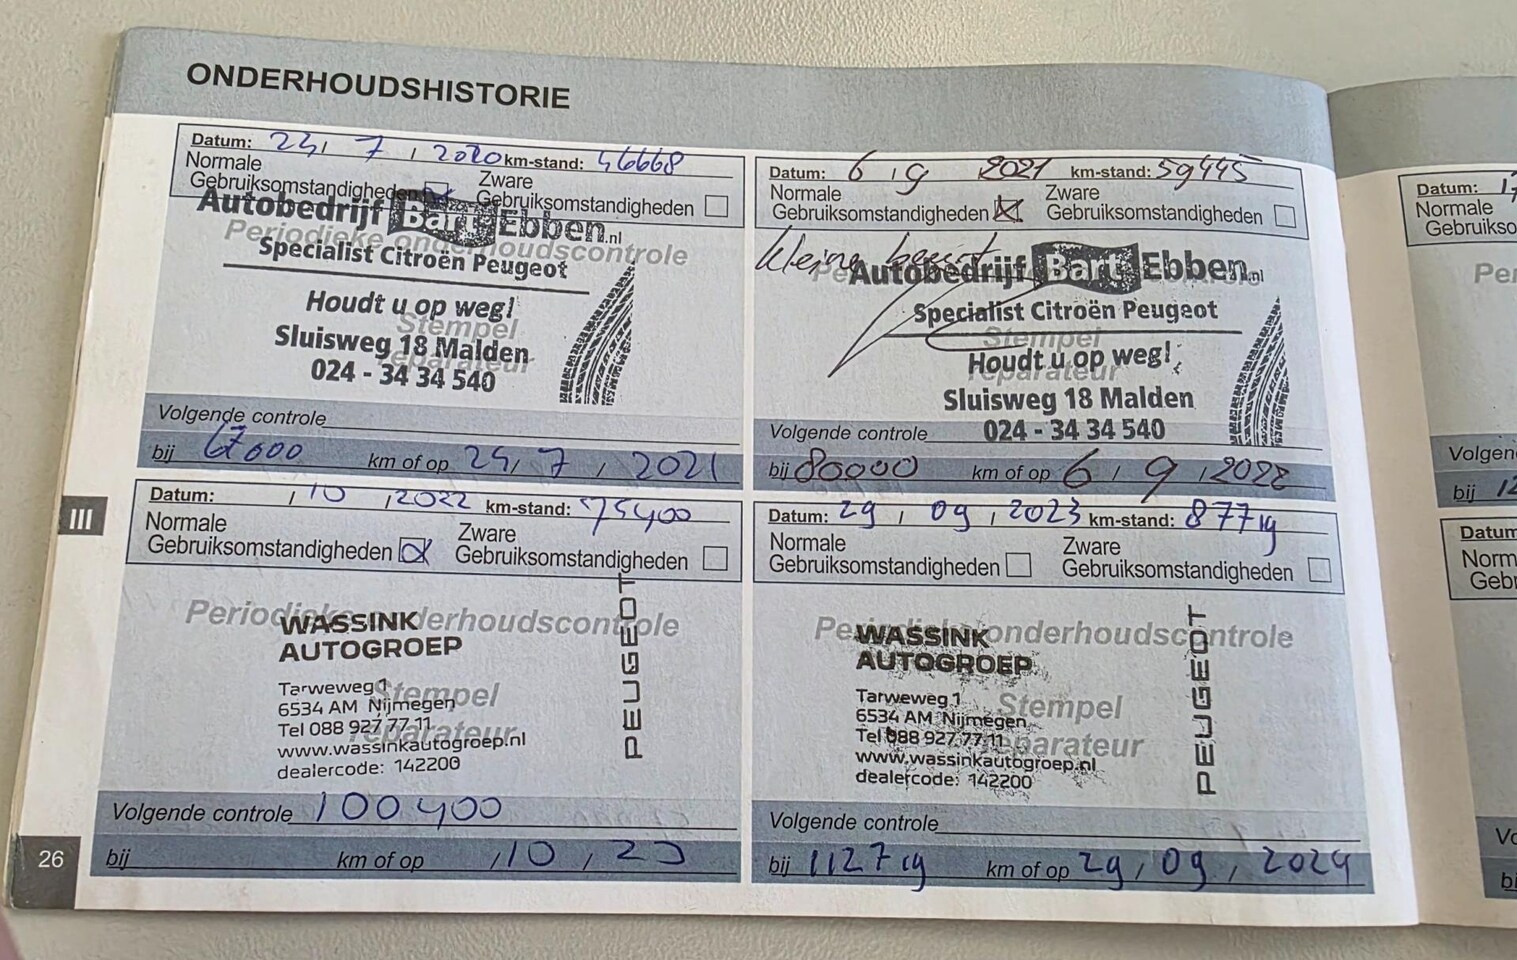 ONDERHOUDSHISTORIE
Datum: 24, 7, 2020 km-stand: 46668
Normale Gebruiksomstandigheden
Zware Gebruiksomstandigheden
Periodieke onderhoudscontrole
Autobedrijf Bart Ebben.nl
Specialist Citroën Peugeot
Houdt u op weg!
Stempel reparateur
Sluisweg 18 Malden
024 - 34 34 540
Volgende controle
bij 67600 km of op 24, 7, 2021
Datum: 6, 9 2021 km-stand: 59445
Normale Gebruiksomstandigheden
Zware Gebruiksomstandigheden
kleine beurt
Autobedrijf Bart Ebben.nl
Specialist Citroën Peugeot
Stempel reparateur
Houdt u op weg!
Sluisweg 18 Malden
Volgende controle 024 - 34 34 540
bij 80000 km of op 6, 9, 2022
III
Datum: , 10, 2022 km-stand: 75400
Normale Gebruiksomstandigheden
Zware Gebruiksomstandigheden
Periodieke onderhoudscontrole
WASSINK
AUTOGROEP
PEUGEOT
Tarweweg 1
6534 AM Nijmegen
Tel 088 927 77 11
www.wassinkautogroep.nl
dealercode: 142200
Stempel reparateur
Volgende controle 100400
bij km of op , 10, 23
Datum: 29, 09, 2023 km-stand: 87719
Normale Gebruiksomstandigheden
Zware Gebruiksomstandigheden
Periodieke onderhoudscontrole
WASSINK
AUTOGROEP
PEUGEOT
Tarweweg 1
6534 AM Nijmegen
Tel 088 927 77 11
www.wassinkautogroep.nl
dealercode: 142200
Stempel reparateur
Volgende controle
bij 112719 km of op 29, 09, 2024
26
Datum:
Normale
Gebruikso
Per
Volgen
bij 12
Datum
Norm
Gebr
Vo
bi